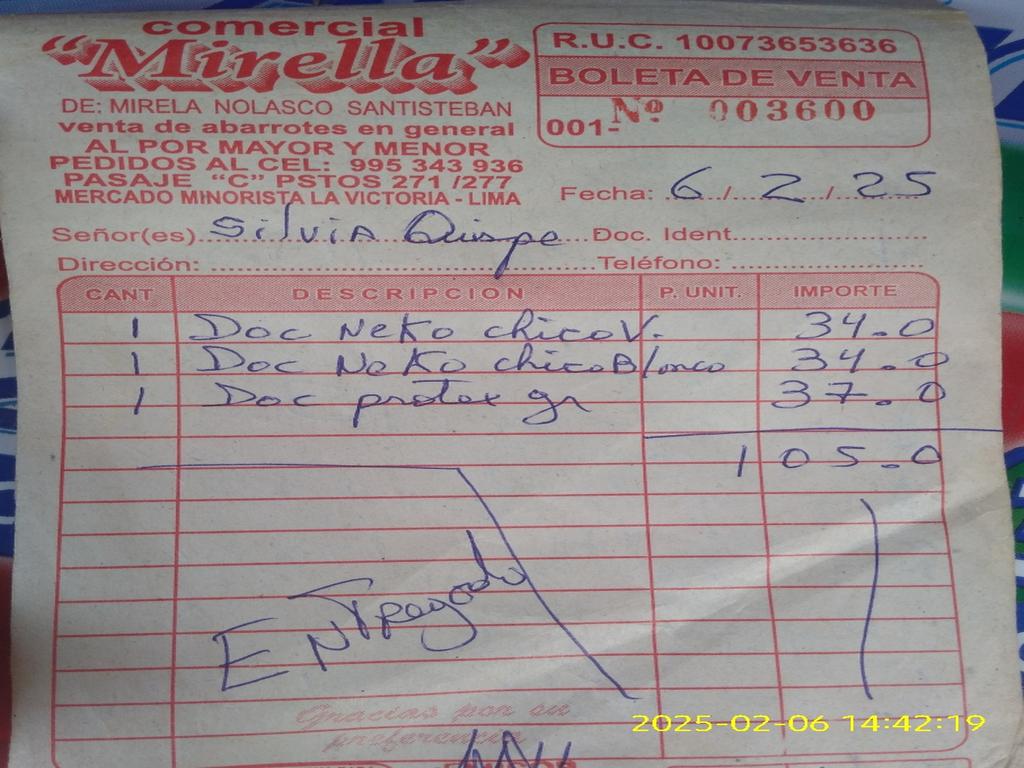 comercial
"Mirella"
DE: MIRELA NOLASCO SANTISTEBAN
venta de abarrotes en general
AL POR MAYOR Y MENOR
PEDIDOS AL CEL: 995 343 936
PASAJE "C" PSTOS 271 /277
MERCADO MINORISTA LA VICTORIA - LIMA
R.U.C. 10073653636
BOLETA DE VENTA
001- Nº 003600
Fecha: 6 / 2 / 25
Señor(es) Silvia Quispe Doc. Ident.
Dirección: Teléfono:
CANT DESCRIPCION P. UNIT. IMPORTE
1 Doc Neko chico V. 34.0
1 Doc Neko chico Blanco 34.0
1 Doc protex gr 37.0
105.0
ENTregado
Gracias por su
preferencia
2025-02-06 14:42:19